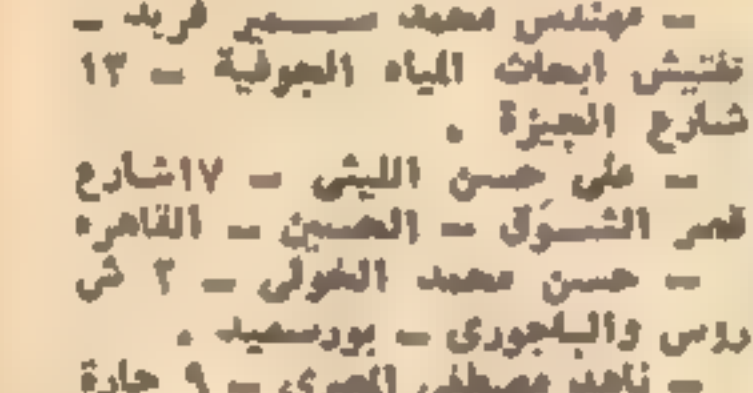 — مهندس محمد سمير فريد —
تفتيش ابحاث المياه الجوفية — ١٣
شارع الجيزة .
— على حسن الليثى — ١٧شارع
قصر الشوق — الحسين — القاهره
— حسن محمد الخولى — ٢ ش
روس والبلجورى — بورسعيد .
— ناهد مصطفى المصرى — ٩ حارة